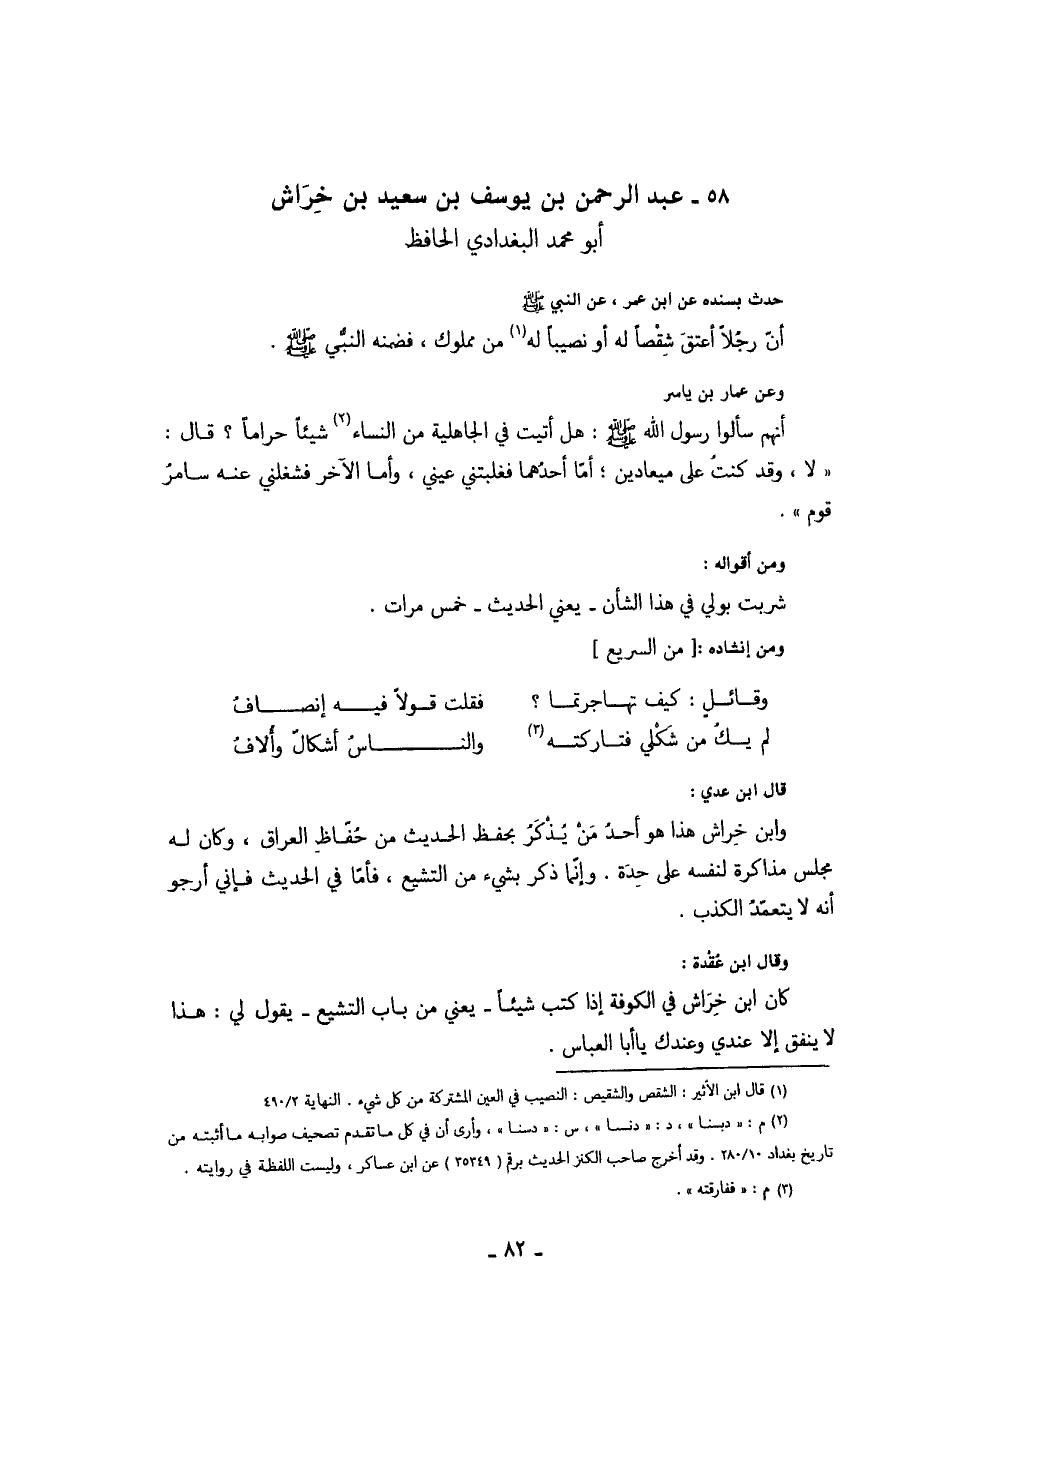 ٥٨ ـ عبد الرحمن بن يوسف بن سعيد بن خِرَاش
أبو محمد البغدادي الحافظ
حدث بسنده عن ابن عمر ، عن النبي ﷺ
أنّ رجُلاً أعتقَ شِقْصاً له أو نصيباً له(١) من مملوك ، فضمنه النبُّي ﷺ .
وعن عمار بن ياسر
أنهم سألوا رسول الله ﷺ : هل أتيت في الجاهلية من النساء(٢) شيئاً حراماً ؟ قال :
« لا ، وقد كنتُ على ميعادين ؛ أمّا أحدُهما فغلبتني عيني ، وأما الآخر فشغلني عنه سامرُ
قوم » .
ومن أقواله :
شربت بولي في هذا الشأن ـ يعني الحديث ـ خمس مرات .
ومن إنشاده :[ من السريع ]
وقائلٍ : كيف تهاجرتما ؟ فقلت قولاً فيه إنصافُ
لم يكُ من شَكْلي فتاركته(٣) والناسُ أشكالٌ وأُلافُ
قال ابن عدي :
وابن خِراش هذا هو أحدُ مَنْ يُذْكَرُ بحفظ الحديث من حُفّاظِ العراق ، وكان له
مجلس مذاكرة لنفسه على حِدَة . وإنّما ذكر بشيء من التشيع ، فأمّا في الحديث فإني أرجو
أنه لا يتعمّدُ الكذب .
وقال ابن عُقْدة :
كان ابن خِرَاش في الكوفة إذا كتب شيئاً ـ يعني من باب التشيع ـ يقول لي : هذا
لا ينفق إلا عندي وعندك ياأبا العباس .
(١) قال ابن الأثير : الشقص والشقيص : النصيب في العين المشتركة من كل شيء . النهاية ٤٩٠/٢
(٢) م : « دبسنا » ، د : « دنسا » ، س : « دسنا » ، وأرى أن في كل ماتقدم تصحيف صوابه ماأثبته من
تاريخ بغداد ٢٨٠/١٠ . وقد أخرج صاحب الكنز الحديث برقم ( ٣٥٣٤٩ ) عن ابن عساكر ، وليست اللفظة في روايته .
(٣) م : « ففارقته » .
ـ ٨٢ ـ